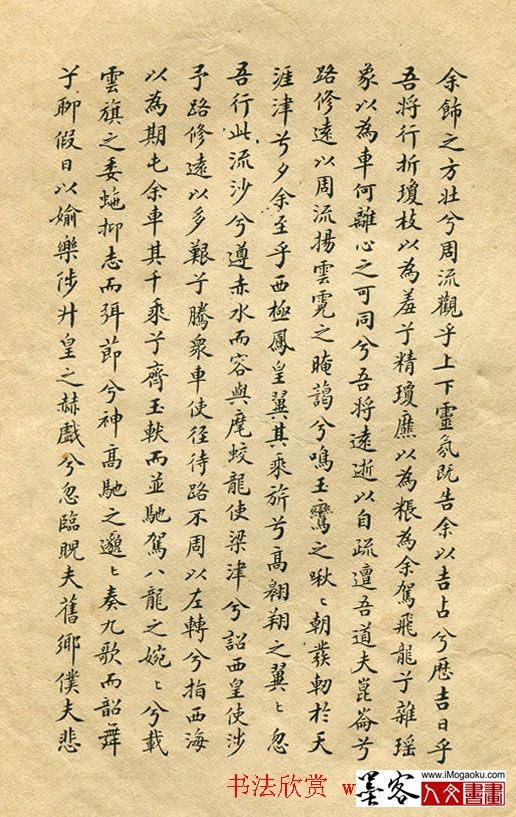 余飾之方壯兮周流觀乎上下靈氛既告余以吉占兮歷吉日乎
吾將行折瓊枝以為羞兮精瓊爢以為粻為余駕飛龍兮雜瑤
象以為車何離心之可同兮吾將遠逝以自疏邅吾道夫崑崙兮
路修遠以周流揚雲霓之晻藹兮鳴玉鸞之啾〻朝發軔於天
津兮夕余至乎西極鳳皇翼其乘旂兮高翱翔之翼〻忽
吾行此流沙兮遵赤水而容與麾蛟龍使梁津兮詔西皇使涉
予路修遠以多艱兮騰衆車使徑待路不周以左轉兮指西海
以為期屯余車其千乘兮齊玉軑而並馳駕八龍之婉〻兮載
雲旗之委蛇抑志而弭節兮神高馳之邈〻奏九歌而舞韶
兮聊假日以婾樂陟升皇之赫戲兮忽臨睨夫舊鄉僕夫悲
书法欣赏 w
墨客
www.iMogaoku.com
人文書畫